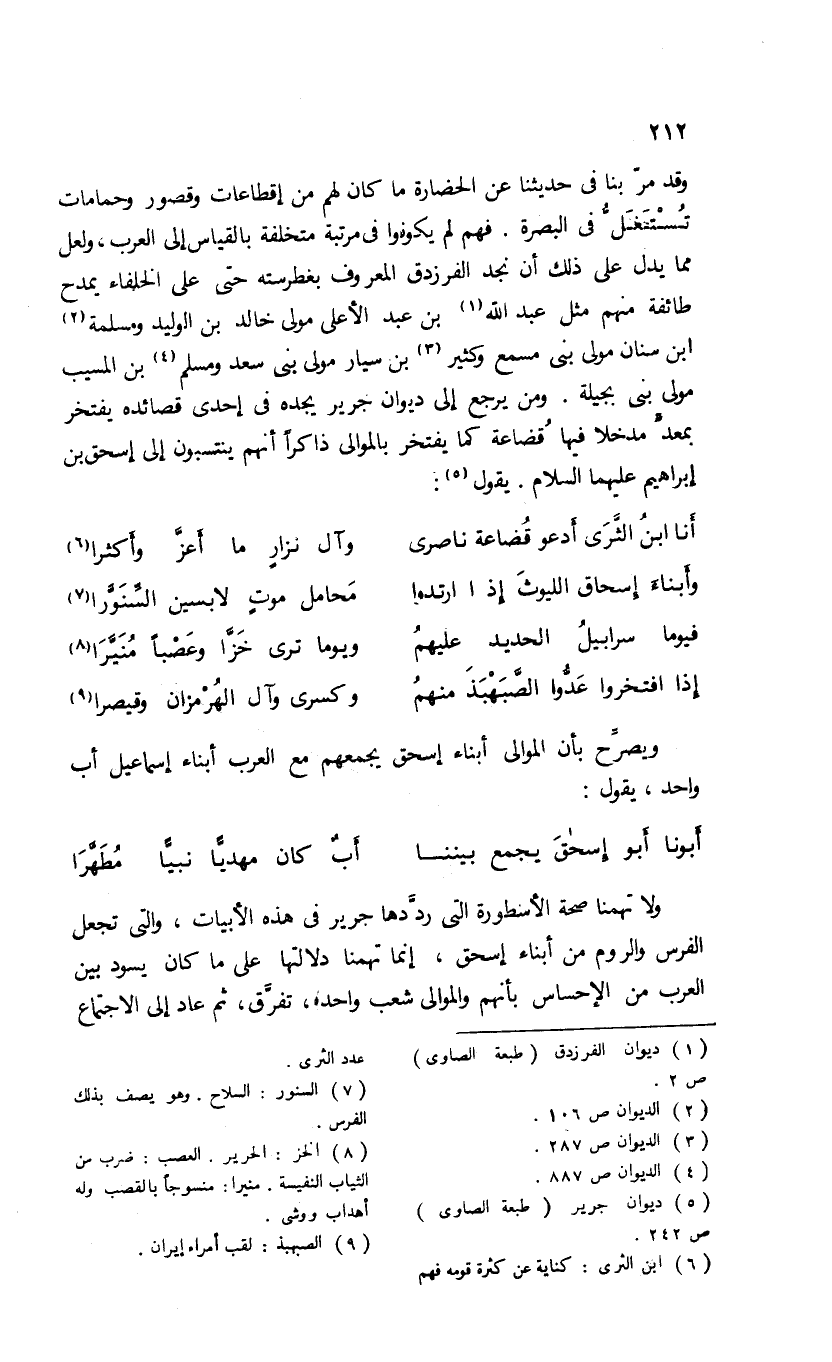 ٢١٢
وقد مرّ بنا فى حديثنا عن الحضارة ما كان لهم من إقطاعات وقصور وحمامات
تُسْتَغَلُّ فى البصرة . فهم لم يكونوا فى مرتبة متخلفة بالقياس إلى العرب ، ولعل
مما يدل على ذلك أن نجد الفرزدق المعروف بغطرسته حتى على الخلفاء يمدح
طائفة منهم مثل عبد الله (١) بن عبد الأعلى مولى خالد بن الوليد ومسلمة (٢)
ابن سنان مولى بنى مسمع وكثير (٣) بن سيار مولى بنى سعد ومسلم (٤) بن المسيب
مولى بنى بجيلة . ومن يرجع إلى ديوان جرير يجده فى إحدى قصائده يفتخر
بمعدّ مدخلا فيها قُضاعة كما يفتخر بالموالى ذاكراً أنهم ينتسبون إلى إسحق بن
إبراهيم عليهما السلام . يقول (٥) :
أنا ابنُ الثَّرَى أدعو قُضاعة ناصرى وآل نزارٍ ما أَعزَّ وأَكثرا (٦)
وأَبناءَ إسحاق الليوثَ إذ ا ارتدوا مَحامل موتٍ لابسين السَّنَوَّرا (٧)
فيوما سرابيلُ الحديد عليهمُ ويوما ترى خَزًّا وعَصْباً مُنَيَّرَا (٨)
إذا افتخروا عَدُّوا الصَّبَهْبَذَ منهمُ وكسرى وآل الهُرْمزان وقيصرا (٩)
ويصرَّح بأن الموالى أبناء إسحق يجمعهم مع العرب أبناء إسماعيل أب
واحد ، يقول :
أَبونا أَبو إسحٰقَ يجمع بيننا أَبٌ كان مهديًّا نبيًّا مُطَهَّرَا
ولا تهمنا صحة الأسطورة التى ردَّدها جرير فى هذه الأبيات ، والتى تجعل
الفرس والروم من أبناء إسحق ، إنما تهمنا دلالتها على ما كان يسود بين
العرب من الإحساس بأنهم والموالى شعب واحد ، تفرَّق ، ثم عاد إلى الاجتماع
(١) ديوان الفرزدق ( طبعة الصاوى )
ص ٢ .
(٢) الديوان ص ١٠٦ .
(٣) الديوان ص ٢٨٧ .
(٤) الديوان ص ٨٨٧ .
(٥) ديوان جرير ( طبعة الصاوى )
ص ٢٤٢ .
(٦) ابن الثرى : كناية عن كثرة قومه فهم
عدد الثرى .
(٧) السنور : السلاح . وهو يصف بذلك
الفرس .
(٨) الخز : الحرير . العصب : ضرب من
الثياب النفيسة . منيرا : منسوجاً بالقصب وله
أهداب ووشى .
(٩) الصبهبذ : لقب أمراء إيران .